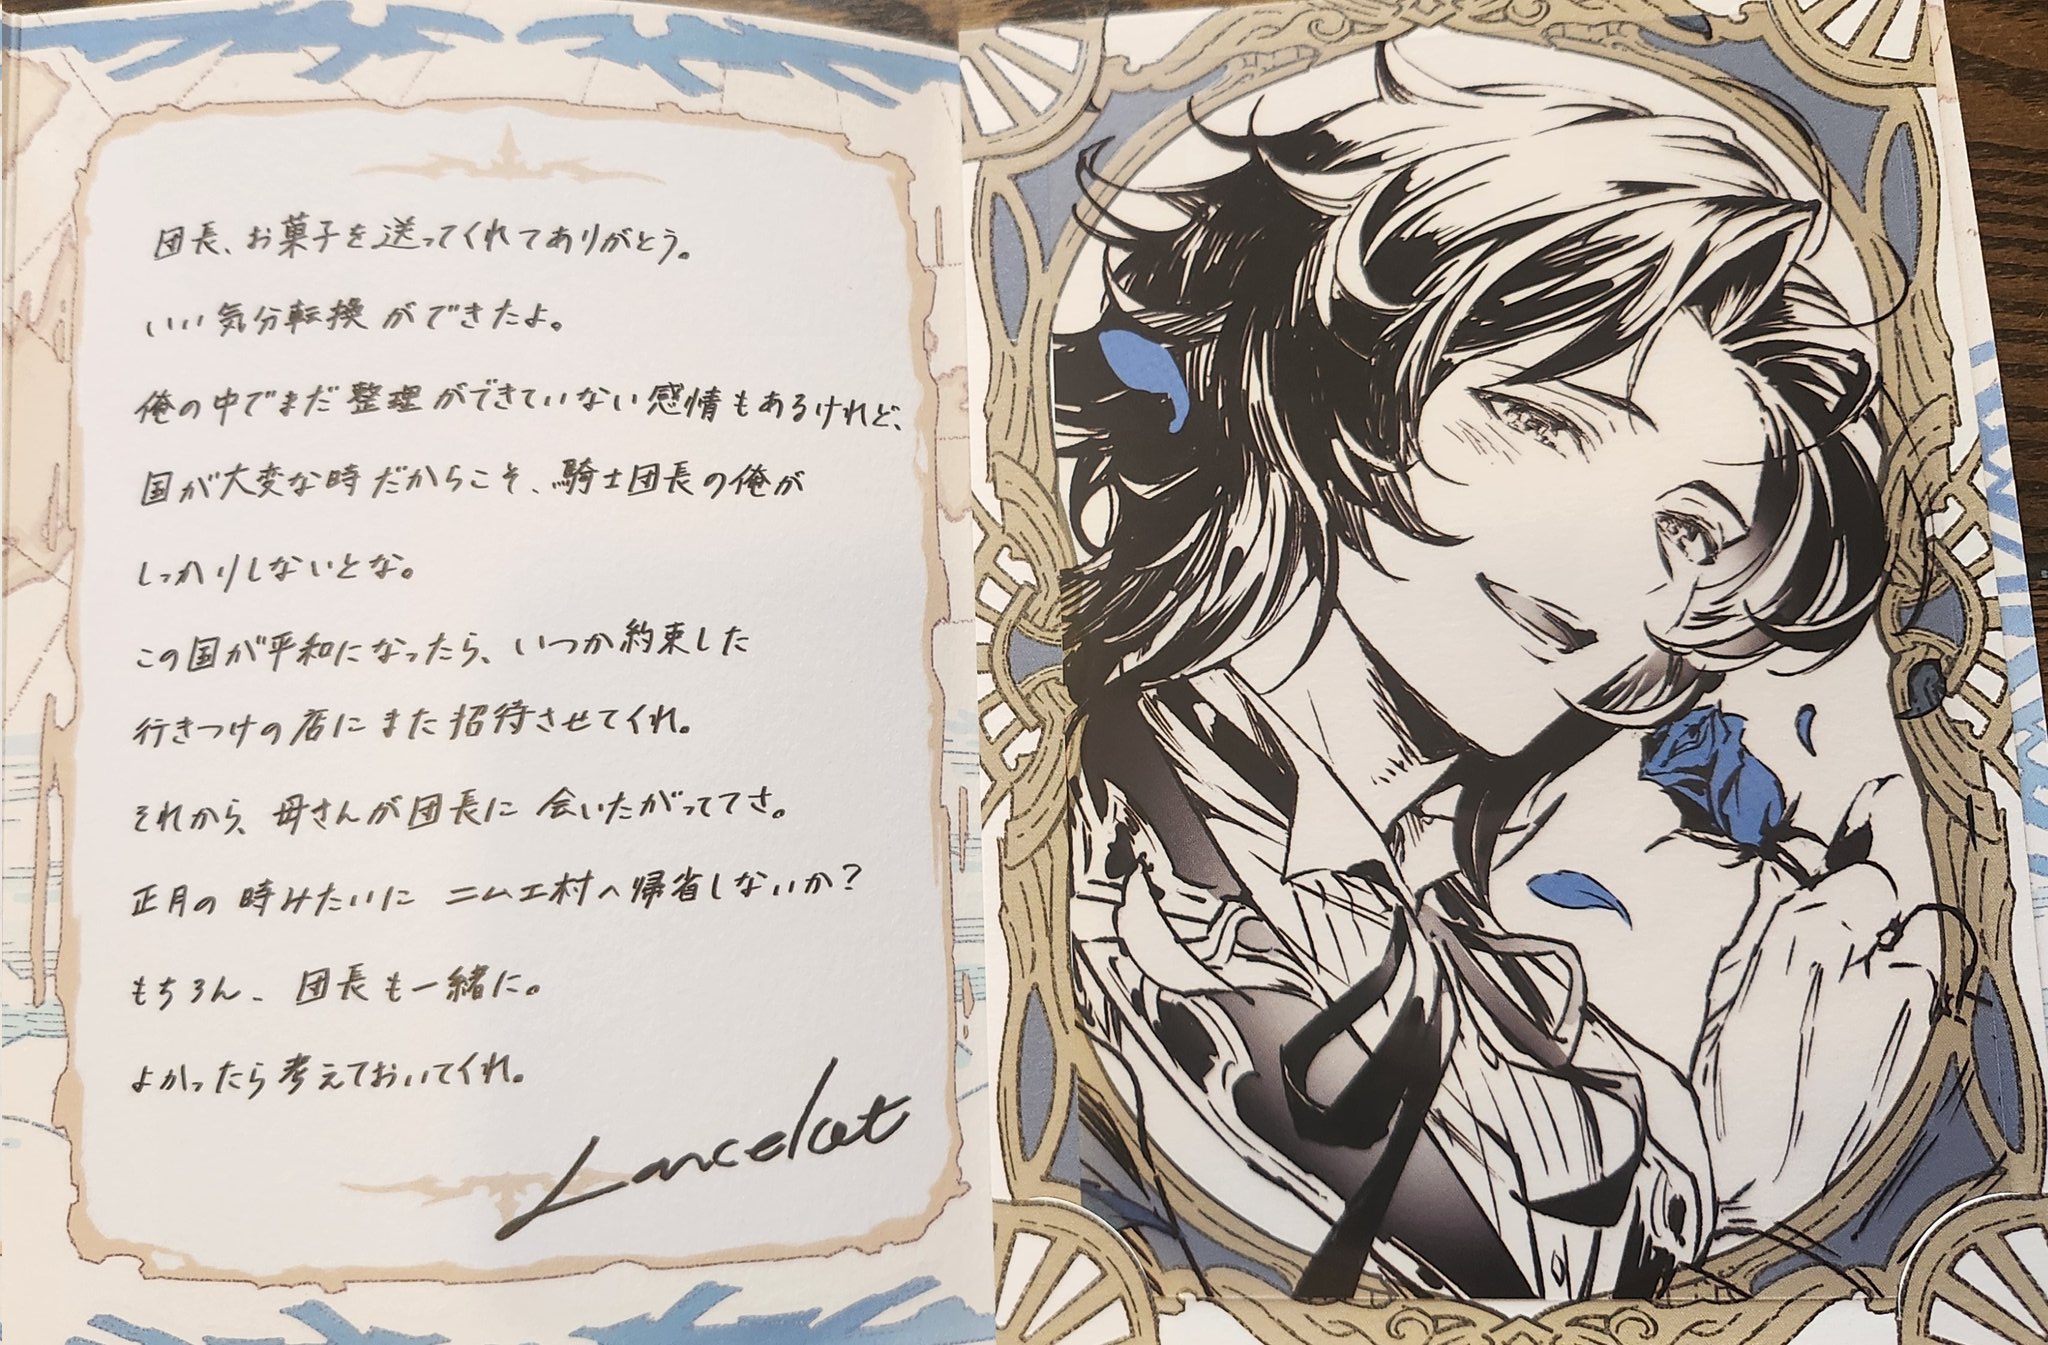 団長、お菓子を送ってくれてありがとう。
いい気分転換ができたよ。
俺の中でまだ整理ができていない感情もあるけれど、
国が大変な時だからこそ、騎士団長の俺が
しっかりしないとな。
この国が平和になったら、いつか約束した
行きつけの店にまた招待させてくれ。
それから、母さんが団長に会いたがっててさ。
正月の時みたいにニムエ村へ帰省しないか？
もちろん、団長も一緒に。
よかったら考えておいてくれ。
Lancelot